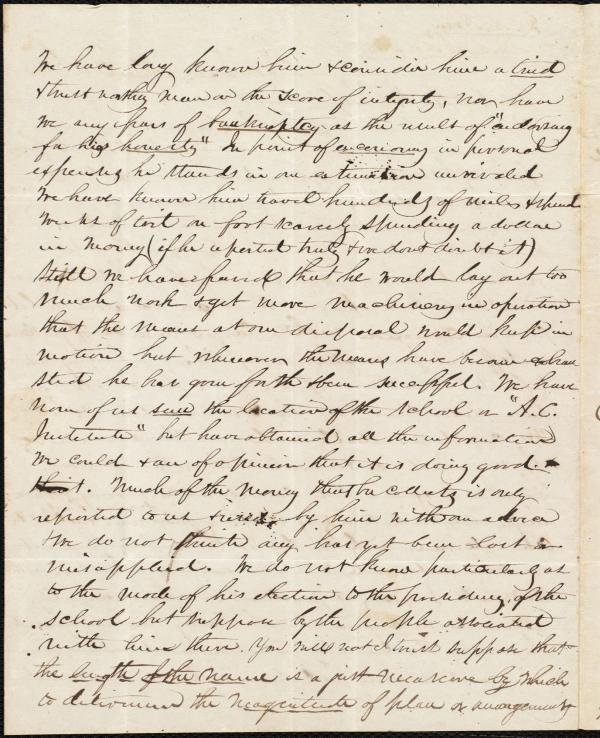 We have long known him & consider him a tried
& trust worthy man on the score of integrity, nor have
we any fears of bankruptcy as the result of "endorsing
for his honesty" In point of economy in personal
expenses he stands in our estimation unrivaled
We have known him travel hundreds of miles & spend
weeks of toil on foot scarcely spending a dollar
in money (if he reported truly & we dont doubt it)
Still we have feared that he would lay out too
much work & get more machinery in operation
that the means at our disposal would keep in
motion but whenever the means have become exhau
sted he has gone forth & been successful. We have
none of us seen the location of the school or "A. C.
Institute" but have obtained all the information
we could & are of opinion that it is doing good.
Much of the money that he collects is only
reported to us & by him with our advice
& we do not think any has yet been lost or
misapplied. We do not know particularly as
to the mode of his election to the presidency of the
school but suppose by the people associated
with him there. You will not I trust suppose that
the length of the name is a just measure by which
to determine the magnitude of plan or arrangements